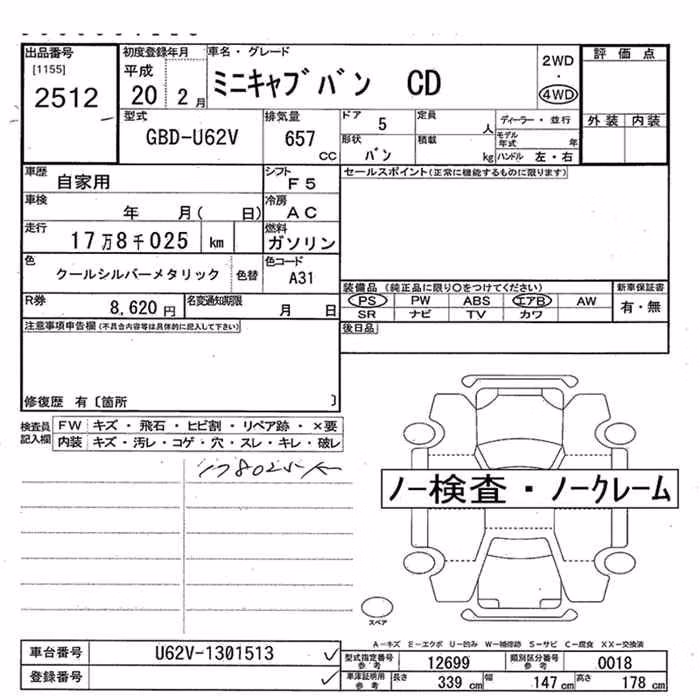 出品番号
[1155]
2512
初度登録年月
平成
20 2月
車名・グレード
ミニキャブバン CD
2WD
・
4WD
評価点
外装 内装
型式
GBD-U62V
排気量
657
CC
ドア
5
定員
人
ディーラー・並行
形状
バン
積載
kg
モデル年式 年
ハンドル 左・右
車歴
自家用
シフト
F5
セールスポイント(正常に機能するものに限ります)
車検
年 月( 日)
冷房
AC
走行
17万8千025 km
燃料
ガソリン
色
クールシルバーメタリック
色替
色コード
A31
装備品(純正品に限り○をつけてください)
新車保証書
PS PW ABS エアB AW
有・無
SR ナビ TV カワ
R券
8,620円
名変通知期限
月 日
後日品
注意事項申告欄(不具合内容等は具体的に記入して下さい)
修復歴 有〔箇所 〕
検査員記入欄
FW キズ・飛石・ヒビ割・リペア跡・×要
内装 キズ・汚レ・コゲ・穴・スレ・キレ・破レ
178025K
ノー検査・ノークレーム
スペア
A-キズ E-エクボ U-凹み W-補修跡 S-サビ C-腐食 XX-交換済
車台番号 U62V-1301513
登録番号
型式指定番号 参考 12699
類別区分番号 参考 0018
車庫証明用 参考
長さ 339cm
幅 147cm
高さ 178cm